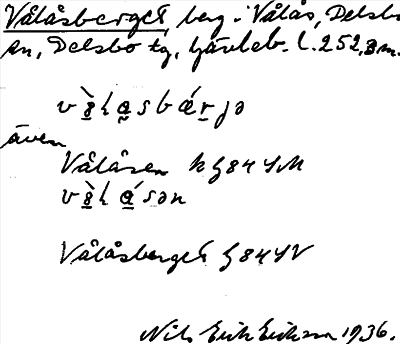 Vålåsberget, berg i Vålås, Delsbo
sn, Delsbo tg, Gävleb. l. 252,3 m.
även
Vålåsen k G 84 SM
Vålåsberget G 84 SV
Nils Erik Eriksson 1936.